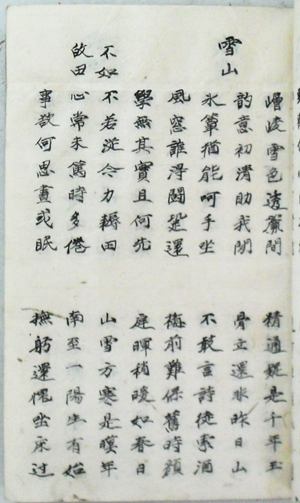 雪山
嶒崚雪色透簾間 精通疑是千年玉
韵意初清助我閑 骨立還 昨日山
氷簟猶能呵手坐 不敢言詩徒索酒
風窓誰得 還 梅前難保舊時顔
學無其實且何先 庭暉稍暖如春日
不如
不若從今力耨田 山雪方寒是 年
心常未篤時多倦 南至一陽生有始
事欲何思晝或眠 撫躬還愧坐床過